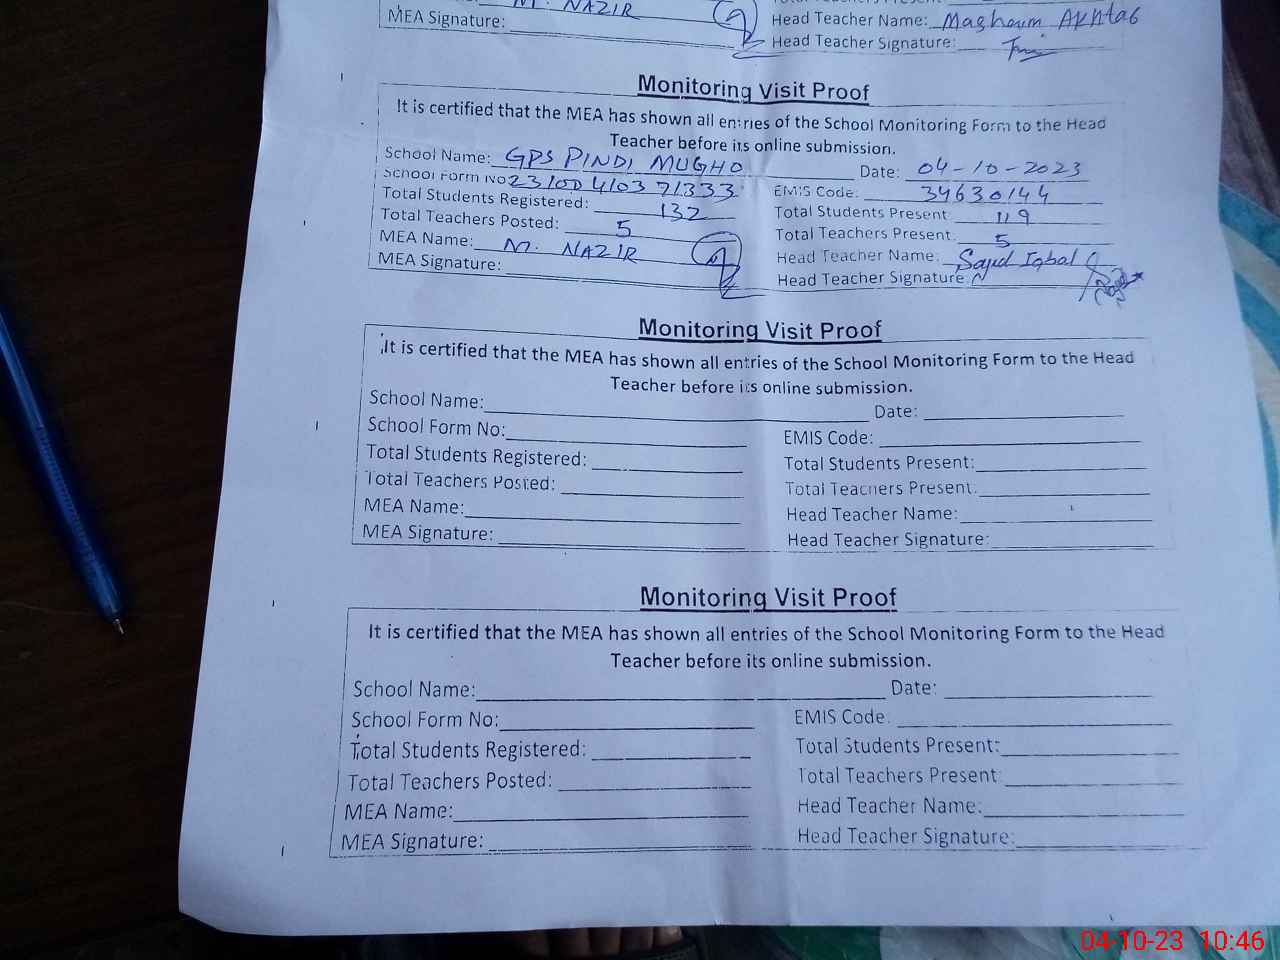 M. NAZIR
MEA Signature:
Head Teacher Name: Maghoum Akhtab
Head Teacher Signature:
Monitoring Visit Proof
It is certified that the MEA has shown all entries of the School Monitoring Form to the Head
Teacher before its online submission.
School Name: GPS PINDI MUGHO Date: 04-10-2023
School Form No 23100410371333 EMIS Code: 34630144
Total Students Registered: 132 Total Students Present 119
Total Teachers Posted: 5 Total Teachers Present: 5
MEA Name: M. NAZIR Head Teacher Name: Sajid Iqbal
MEA Signature: Head Teacher Signature:
Monitoring Visit Proof
It is certified that the MEA has shown all entries of the School Monitoring Form to the Head
Teacher before its online submission.
School Name: Date:
School Form No: EMIS Code:
Total Students Registered: Total Students Present:
Total Teachers Posted: Total Teachers Present:
MEA Name: Head Teacher Name:
MEA Signature: Head Teacher Signature:
Monitoring Visit Proof
It is certified that the MEA has shown all entries of the School Monitoring Form to the Head
Teacher before its online submission.
School Name: Date:
School Form No: EMIS Code:
Total Students Registered: Total Students Present:
Total Teachers Posted: Total Teachers Present:
MEA Name: Head Teacher Name:
MEA Signature: Head Teacher Signature:
04-10-23 10:46